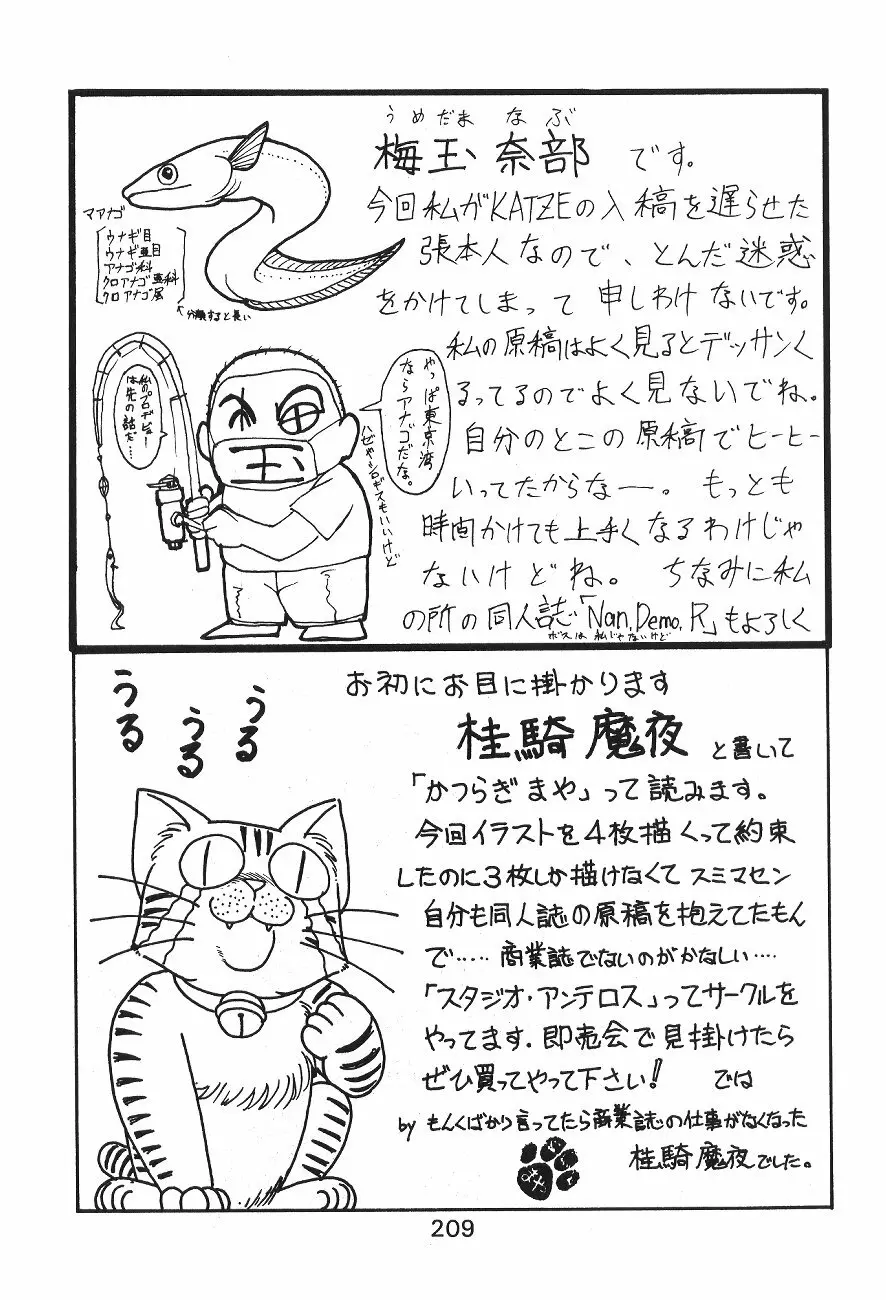 うめだま なぶ
梅玉 奈部 です。
今回私がKATZEの入稿を遅らせた
張本人なので、とんだ迷惑
をかけてしまって 申しわけないです。
私の原稿はよく見るとデッサンく
るってるのでよく見ないでね。
自分のとこの原稿でヒーヒー
いってたからなー。 もっとも
時間かけても上手くなるわけじゃ
ないけどね。 ちなみに私
の所の同人誌「Nan.Demo.R」もよろしく
ボスは私じゃないけど
マアナゴ
ウナギ目
ウナギ亜目
アナゴ科
クロアナゴ亜科
クロアナゴ属
↖分類すると長い
やっぱ東京湾
ならアナゴだな。
ハゼやシロギスもいいけど
私のプロデビュー
は先の話だ…
玉
うる
うる
うる
お初にお目に掛かります
桂騎魔夜 と書いて
「かつらぎまや」って読みます。
今回イラストを4枚描くって約束
したのに3枚しか描けなくてスミマセン
自分も同人誌の原稿を抱えてたもん
で…… 商業誌でないのがかなしい……
「スタジオ・アンテロス」ってサークルを
やってます. 即売会で見掛けたら
ぜひ買ってやって下さい! では
by もんくばかり言ってたら商業誌の仕事がなくなった
桂騎魔夜でした。
209